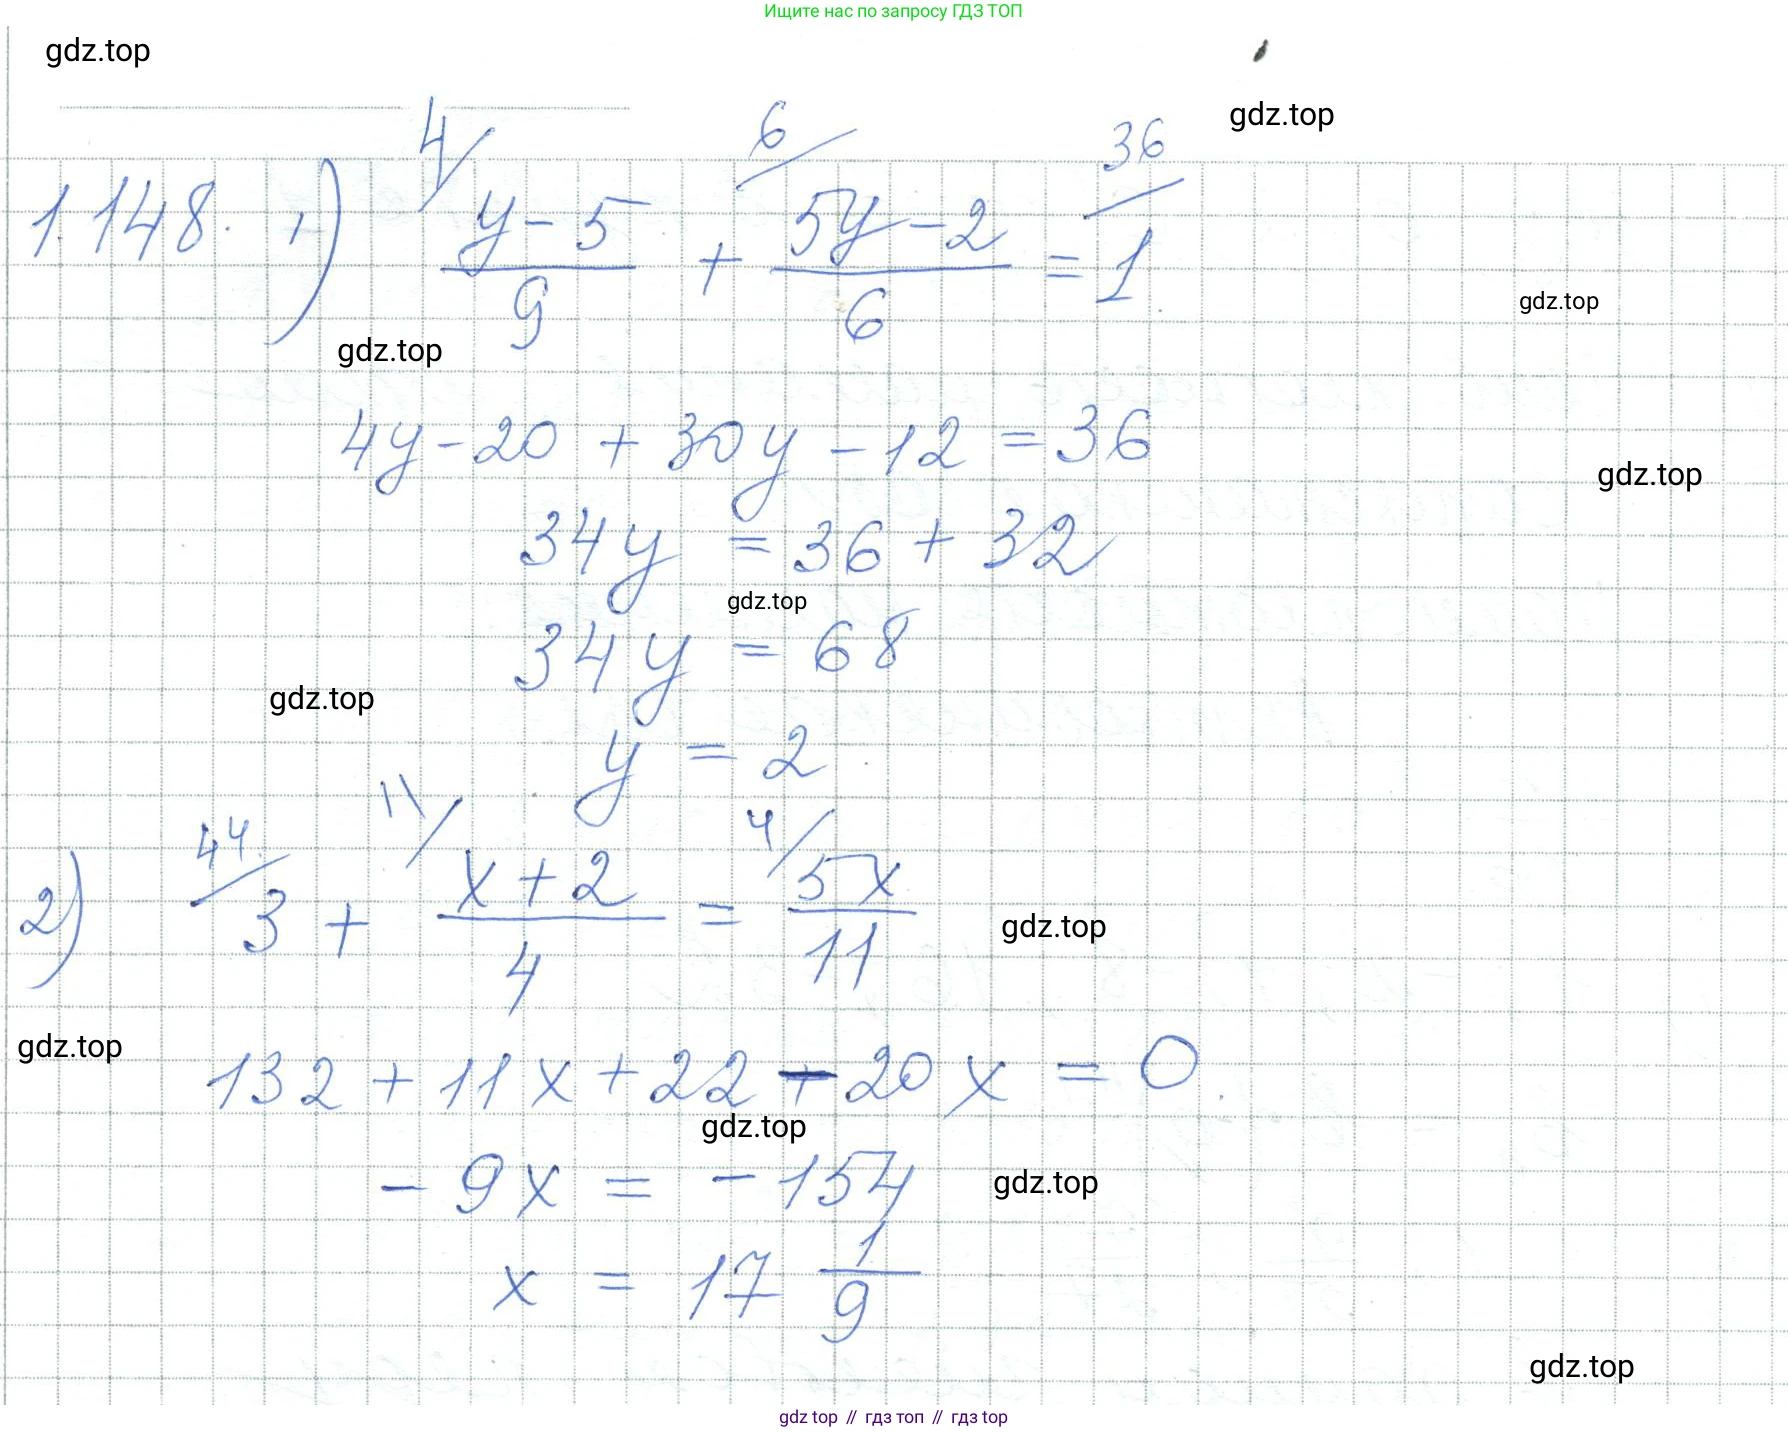 Ищите нас по запросу ГДЗ ТОП
gdz.top
gdz.top
1.148. 1) 4/ (y-5)/9 + 6/ (5y-2)/6 = 36/ 1
gdz.top
gdz.top
4y-20 + 30y - 12 = 36
gdz.top
34y = 36 + 32
gdz.top
34y = 68
gdz.top
y = 2
2) 44/ 3 + 11/ (x+2)/4 = 4/ 5x/11
gdz.top
gdz.top
132 + 11x + 22 - 20x = 0
gdz.top
- 9x = - 154
gdz.top
x = 17 1/9
gdz.top
gdz top // гдз топ // гдз top